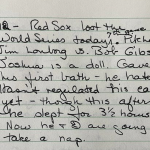 - Red Sox lost the
World Series today! Pitche
Jim Lonborg vs. Bob Gibs
Joshua is a doll. Gave
his first bath - he hate
hasn't regulated his ea
yet - though this afte
he slept for 3½ hours
Now he & are going
take a nap.